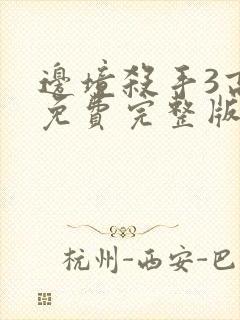 邊境殺手3高
免費完整版
杭州-西安-巴